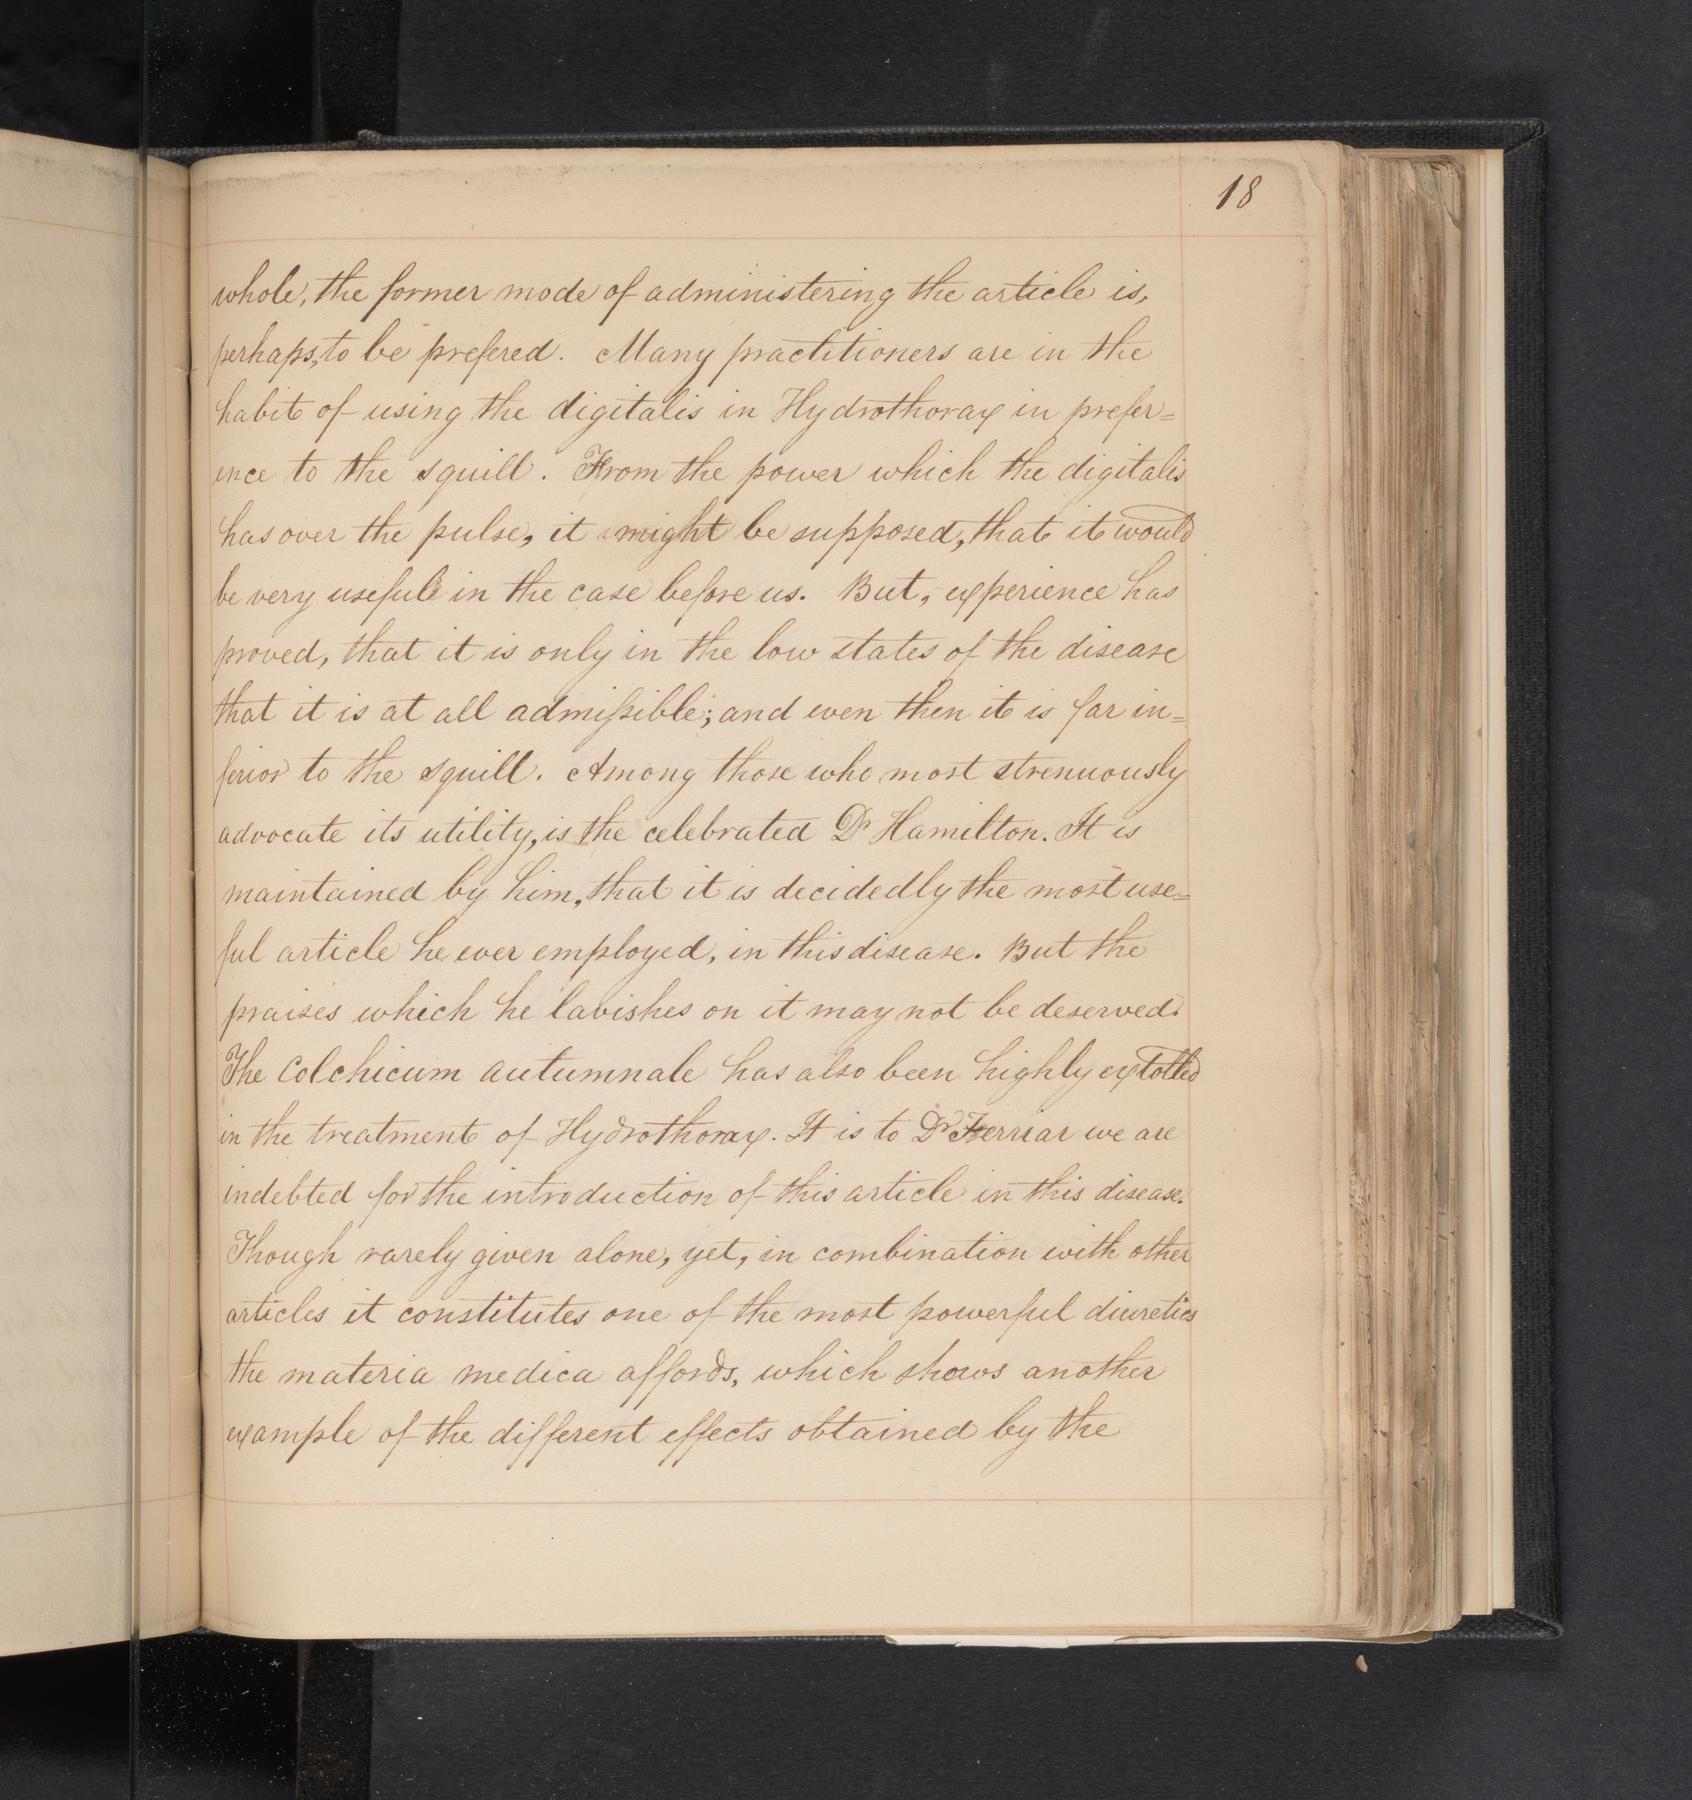 18
whole, the former mode of administering the article is,
perhaps, to be prefered. Many practitioners are in the
habit of using the digitalis in Hydrothorax in prefer=
ence to the squill. From the power which the digitalis
has over the pulse, it might be supposed, that it would
be very useful in the case before us. But, experience has
proved, that it is only in the low states of the disease
that it is at all admiſsible; and even then it is far in=
ferior to the squill. Among those who most strenuously
advocate its utility, is the celebrated Dr Hamilton. It is
maintained by him, that it is decidedly the most use=
ful article he ever employed, in this disease. But the
praises which he lavishes on it may not be deserved.
The Colchicum autumnale has also been highly extolled
in the treatment of Hydrothorax. It is to Dr Ferriar we are
indebted for the introduction of this article in this disease.
Though rarely given alone, yet, in combination with other
articles it constitutes one of the most powerful diuretics
the materia medica affords, which shows another
example of the different effects obtained by the